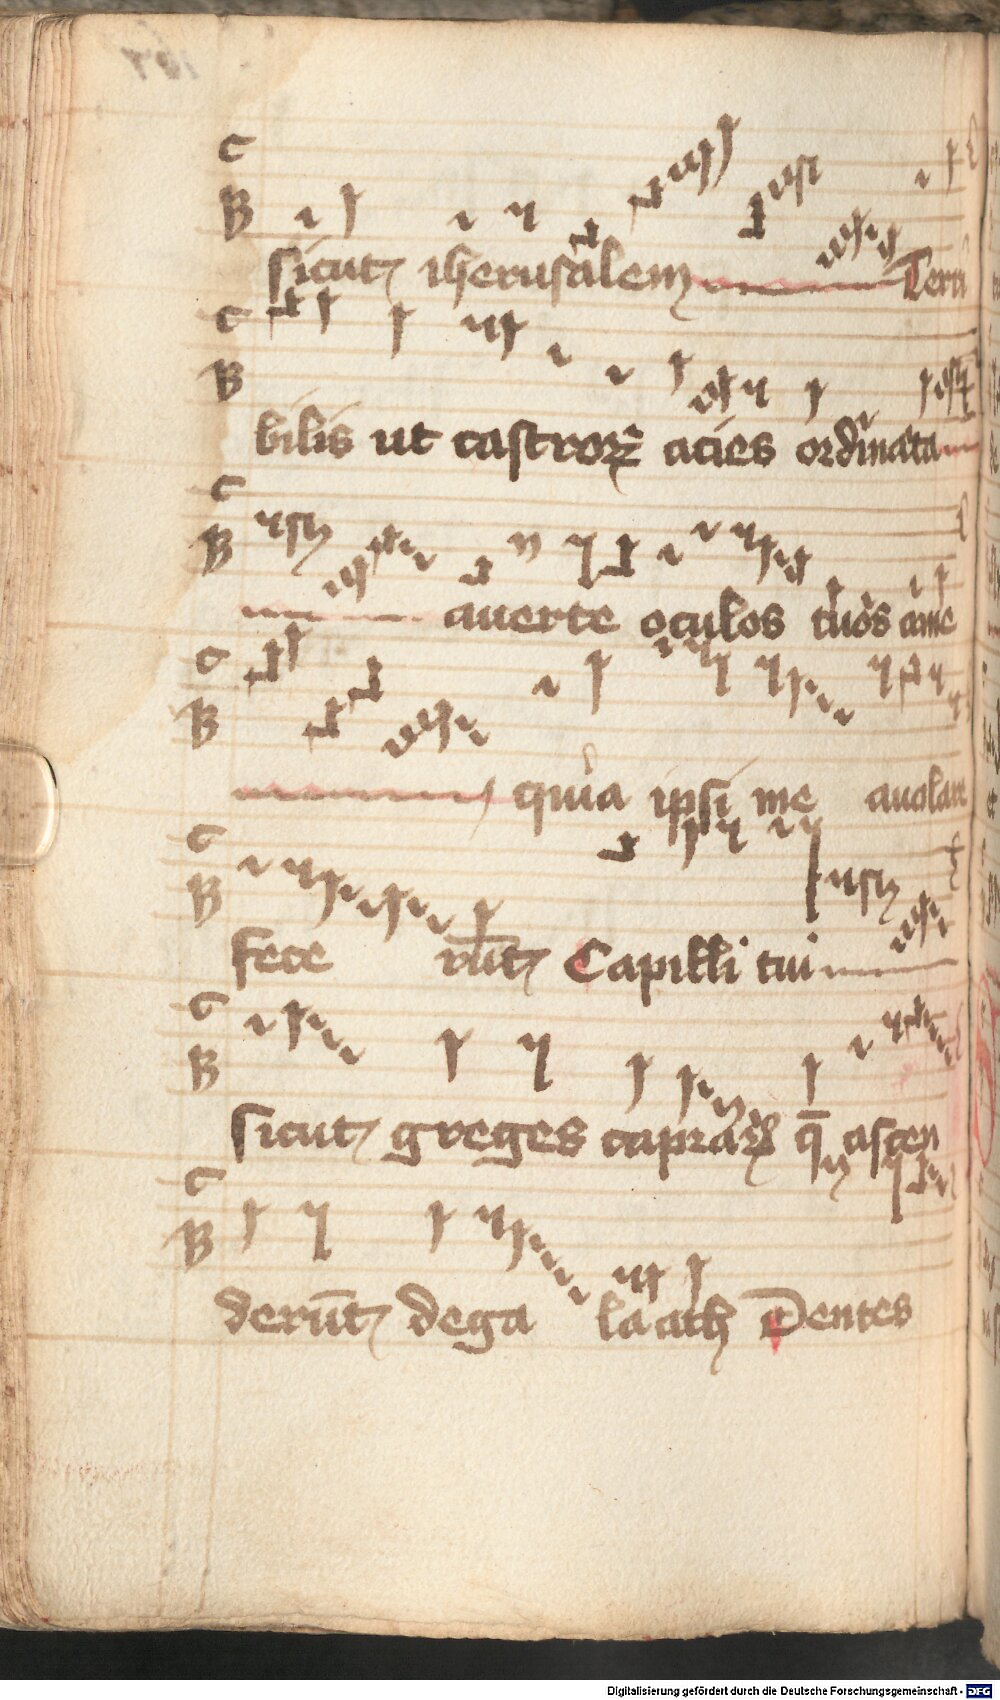 sicut iherusalem Terri
bilis ut castroꝝ acies ordinata
auerte oculos tuos ame
quia ipsi me auolare
fece rūt Capilli tui
sicut greges capraꝝ q̄ ascen
derūt dega laath Dentes
Digitalisierung gefördert durch die Deutsche Forschungsgemeinschaft - DFG